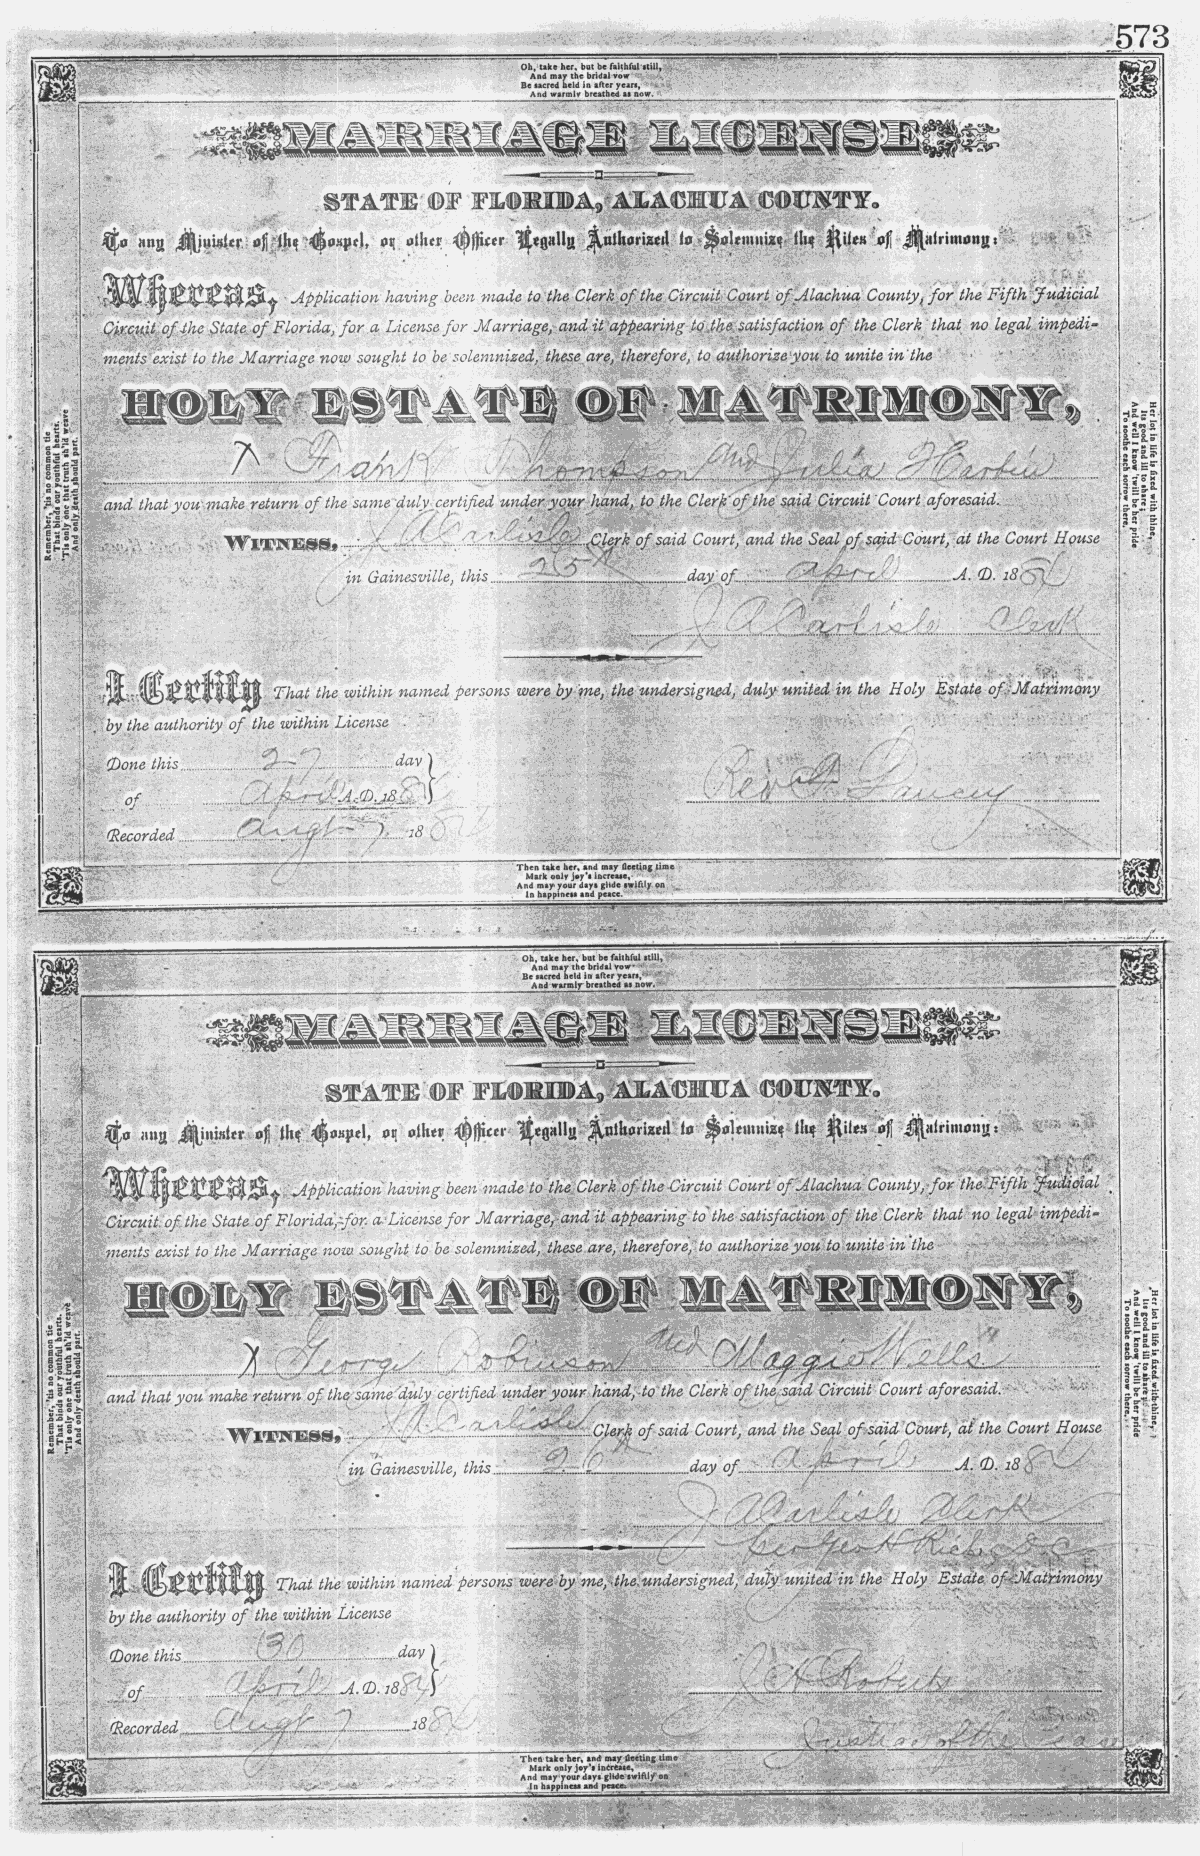 573
Oh, take her, but be faithful still,
And may the bridal vow
Be sacred held in after years,
And warmly breathed as now.
MARRIAGE LICENSE
STATE OF FLORIDA, ALACHUA COUNTY.
To any Minister of the Gospel, or other Officer Legally Authorized to Solemnize the Rites of Matrimony:
Whereas, Application having been made to the Clerk of the Circuit Court of Alachua County, for the Fifth Judicial
Circuit of the State of Florida, for a License for Marriage, and it appearing to the satisfaction of the Clerk that no legal impedi-
ments exist to the Marriage now sought to be solemnized, these are, therefore, to authorize you to unite in the
HOLY ESTATE OF MATRIMONY,
X Frank Thomsson and Julia
and that you make return of the same duly certified under your hand, to the Clerk of the said Circuit Court aforesaid.
WITNESS, J A Carlisle Clerk of said Court, and the Seal of said Court, at the Court House
in Gainesville, this 25th day of April A. D. 1884
J A Carlisle Clerk
I Certify That the within named persons were by me, the undersigned, duly united in the Holy Estate of Matrimony
by the authority of the within License
Done this 27 day
of April A.D. 188
Rev
Recorded Augt 7 1884
Remember, 'tis no common tie
That binds our youthful hearts.
'Tis only one that truth sh'ld weave
And only death should part.
Her lot in life is fixed with thine,
Its good and ill to share;
And well I know 'twill be her pride
To soothe each sorrow there.
Then take her, and may fleeting time
Mark only joy's increase,
And may your days glide swiftly on
In happiness and peace.
Oh, take her, but be faithful still,
And may the bridal vow
Be sacred held in after years,
And warmly breathed as now.
MARRIAGE LICENSE
STATE OF FLORIDA, ALACHUA COUNTY.
To any Minister of the Gospel, or other Officer Legally Authorized to Solemnize the Rites of Matrimony:
Whereas, Application having been made to the Clerk of the Circuit Court of Alachua County, for the Fifth Judicial
Circuit of the State of Florida, for a License for Marriage, and it appearing to the satisfaction of the Clerk that no legal impedi-
ments exist to the Marriage now sought to be solemnized, these are, therefore, to authorize you to unite in the
HOLY ESTATE OF MATRIMONY,
X George Robinson and Maggie Wells
and that you make return of the same duly certified under your hand, to the Clerk of the said Circuit Court aforesaid.
WITNESS, J A Carlisle Clerk of said Court, and the Seal of said Court, at the Court House
in Gainesville, this 26th day of April A. D. 1884
J A Carlisle Clerk
Geo H D C
I Certify That the within named persons were by me, the undersigned, duly united in the Holy Estate of Matrimony
by the authority of the within License
Done this 30 day
of April A.D. 1884
J H Roberts
Recorded Augt 7 1884
Justice of the Peace
Remember, 'tis no common tie
That binds our youthful hearts.
'Tis only one that truth sh'ld weave
And only death should part.
Her lot in life is fixed with thine,
Its good and ill to share;
And well I know 'twill be her pride
To soothe each sorrow there.
Then take her, and may fleeting time
Mark only joy's increase,
And may your days glide swiftly on
In happiness and peace.